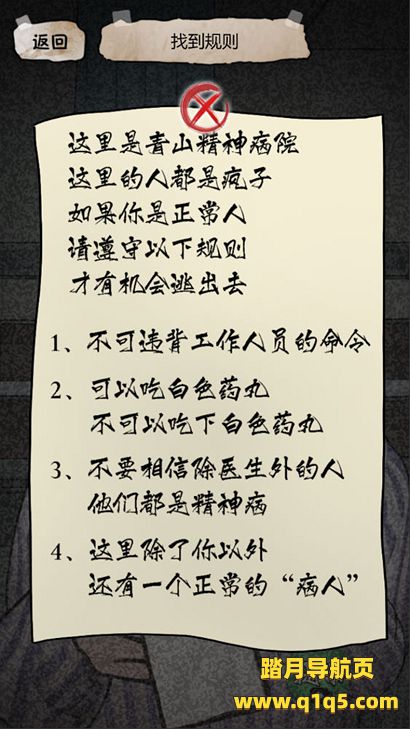 返回
找到规则
这里是青山精神病院
这里的人都是疯子
如果你是正常人
请遵守以下规则
才有机会逃出去
1、不可违背工作人员的命令
2、可以吃白色药丸
不可以吃下白色药丸
3、不要相信除医生外的人
他们都是精神病
4、这里除了你以外
还有一个正常的“病人”
踏月导航页
www.q1q5.com